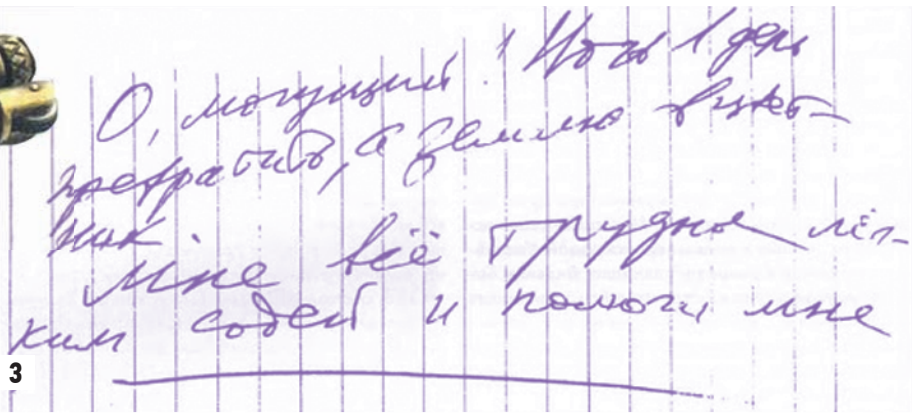 О, могущий! Ночь в день
превратить, а землю в цвет-
ник.
Мне всё трудное лёг-
ким содей и помоги мне
3